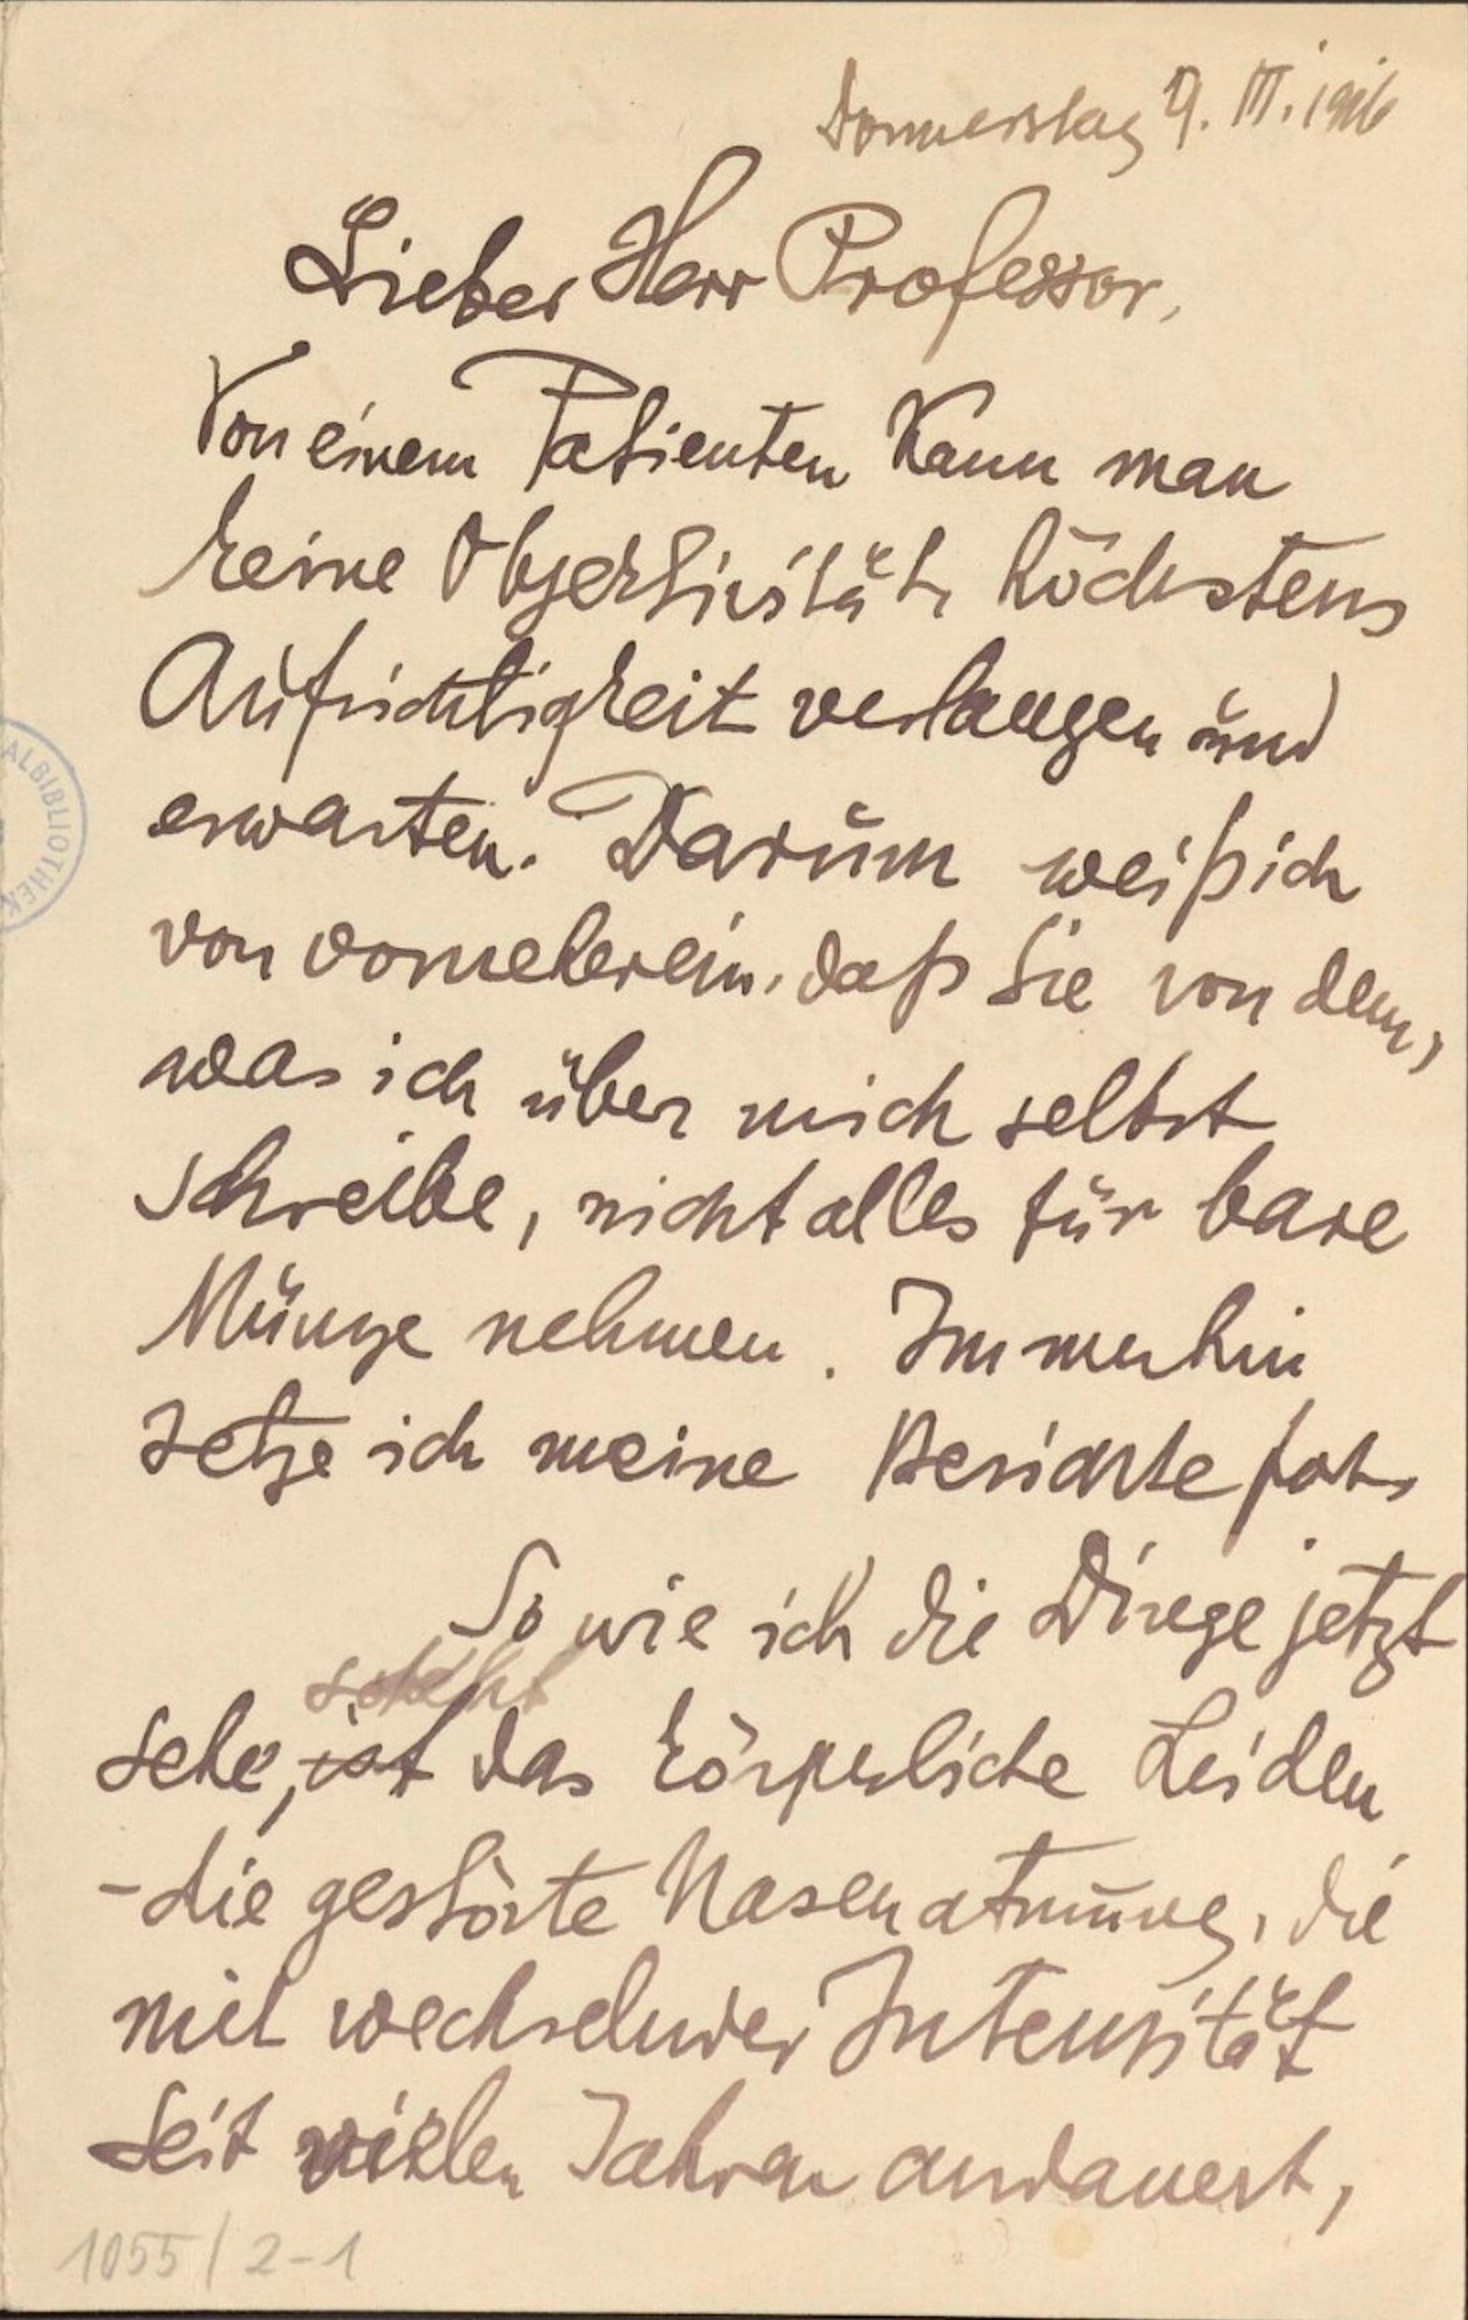 Donnerstag 9. III. 1926
Lieber Herr Professor,
Von einem Patienten kann man
keine Objektivität, höchstens
Aufrichtigkeit verlangen und
erwarten. Darum weiß ich
von vorneherein, daß Sie von dem,
was ich über mich selbst
schreibe, nicht alles für bare
Münze nehmen. Immerhin
setze ich meine Berichte fort.
So wie ich die Dinge jetzt
steht
sehe, ist das körperliche Leiden
- die gestörte Nasenatmung, die
mit wechselnder Intensität
seit vielen Jahren andauert,
1055/2-1
ALBIBLIOTHEK